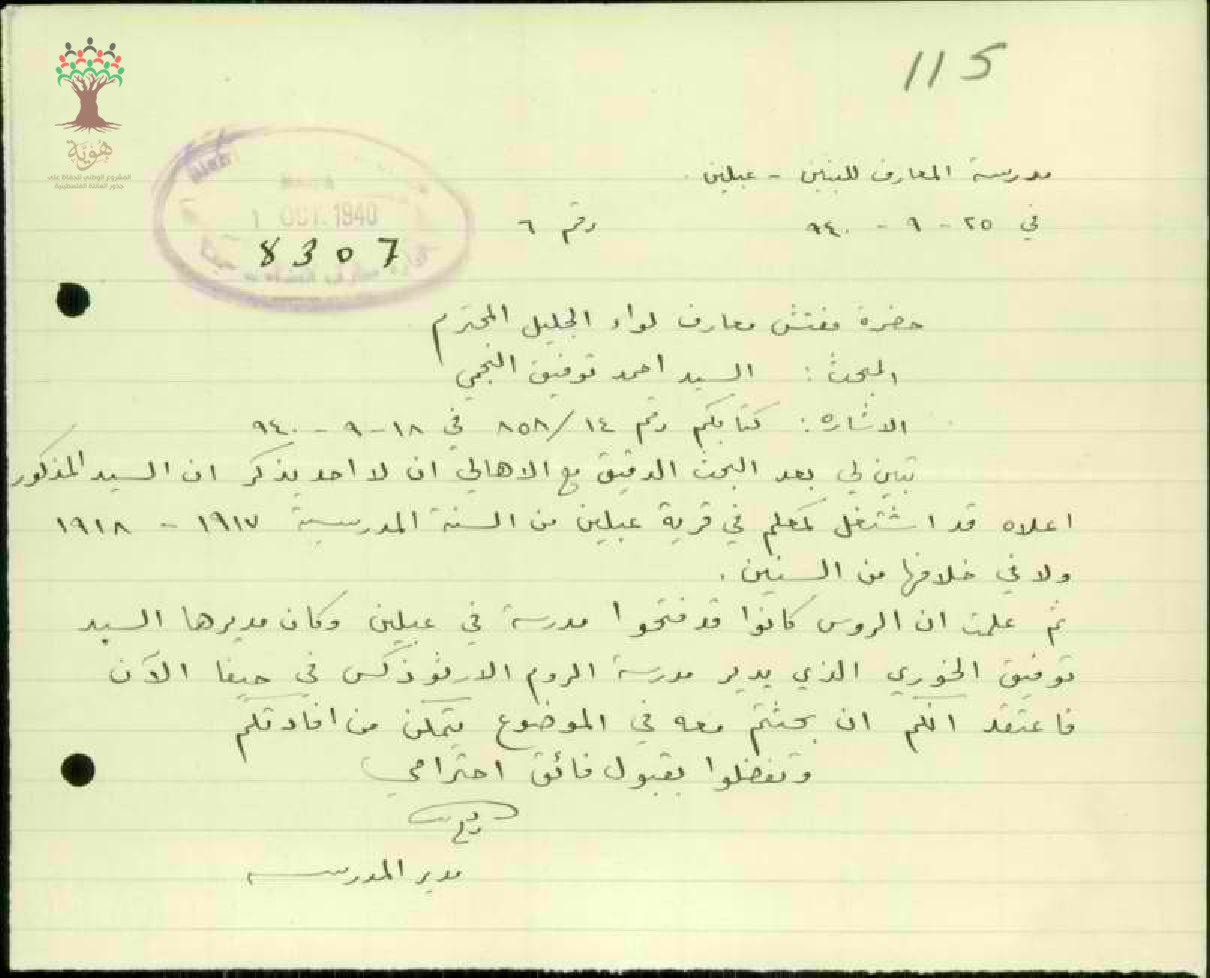 115
هوية
المشروع الوطني للحفاظ على
جذور العائلة الفلسطينية
1 OCT. 1940
8307
مدرسة المعارف للبنين - عبلين
في ٢٥ - ٩ - ٩٤٠ رقم ٦
حضرة مفتش معارف لواء الجليل المحترم
المبحث : السيد احمد توفيق النجمي
الاشاره : كتابكم رقم ٨٥٨/١٤ في ١٨ - ٩ - ٩٤٠
تبين لي بعد البحث الدقيق مع الاهالي ان لا احد يذكر ان السيد المذكور
اعلاه قد اشتغل كمعلم في قرية عبلين من السنة المدرسية ١٩١٧ - ١٩١٨
ولا في خلافها من السنين .
ثم علمت ان الروس كانوا قد فتحوا مدرسة في عبلين وكان مديرها السيد
توفيق الخوري الذي يدير مدرسة الروم الارثوذكس في حيفا الآن
فاعتقد انكم ان بحثتم معه في الموضوع يتمكن من افادتكم
وتفضلوا بقبول فائق احترامي
مدير المدرسه